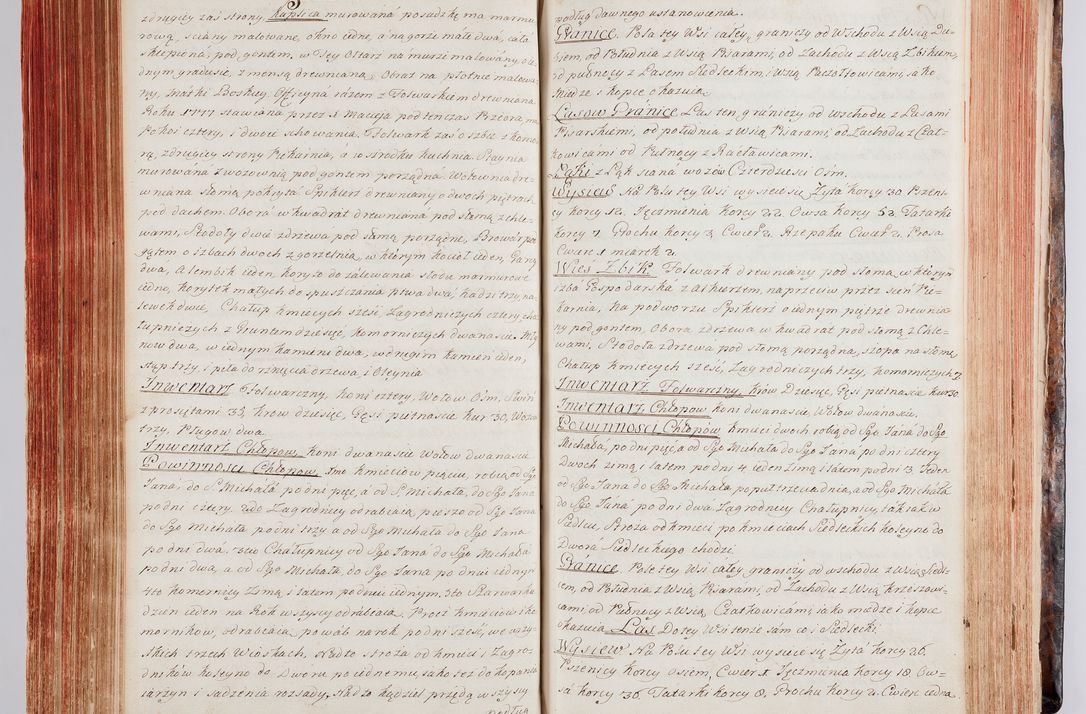 z drugiey zaś strony. Kaplica murowana posadzkę ma marmu-
rową, sciany malowane, okno iedne, a na gorze małe dwa, cała
sklepiona, pod gontem, w Tey Ołtarz na murze malowany, o ie-
dnym gradusie, z mensą drewnianą, Obraz na płotnie malowa-
ny, Matki Boskiey, Officyna razem z Folwarkiem drewniana
Roku 1777 stawiana przez X Macieja podtenczas Przeora, ma
Pokoi cztery, i dwoie schowania. Folwark zaś o izbie z komo-
rą, z drugiey strony Pikarnia, a w srodku kuchnia. Staynia
murowana z wozownią pod gontem porządna. Wołownia dre-
wniana słomą pokryta Spiklerz drewniany o dwoch piętrach
pod dachem. Obora w kwadrat drewniana pod słomą z chle-
wami, Stodoły dwie z drzewa pod słomą porządne, Browar pod
gątem o izbach dwoch z gorzelnią, w ktorym kocioł ieden, Garcy
dwa, Alembik ieden, koryto do zalewania słodu marmurowe
iedne, korytek małych do spuszczania piwa dwa, kadzi trzy, na-
lewek dwie, Chałup kmiecych szesc, Zagrodniczych cztery, cha-
łupniczych z Gruntem dziesięc, komorniczych dwanascie. Mły-
now dwa, w iednym kamieni dwa, w drugim kamien ieden,
stęp trzy, i piła do rznięcia drzewa, i Oleynia
Inwentarz Folwarczny. koni cztery, Wołow Osm, Swiń
z prosiętami 35, krow dziesięc, Gęsi pietnascie kur 30, Wozow
trzy, Pługow dwa.
Inwentarz Chłopow, koni dwanascie Wołow dwanascie
Powinnosci Chłopow, Imo kmieciow pięciu, robią od Sgo
Jana do S. Michała po dni pięc, a od S. Michała, do Sgo Jana
po dni cztery. 2do Zagrodnicy odrabiaią pieszo od Sgo Jana
do Sgo Michała po dni trzy a od Sgo Michała do Sgo Jana
po dni dwa. 3tio Chałupnicy od Sgo Jana do Sgo Michała
po dni dwa, a od Sgo Michała, do Sgo Jana po dniu iednym
4to komornicy Zimą i latem po dniu iednym. 5to Szarwarku
dzień ieden na Rok wszyscy odrabiaią. Procz kmieciow i ko-
mornikow, odrabiaią powab na rok po dni szesc, we wszy-
stkich trzech Wioskach, Nadto stroża od kmieci i Zagro-
dnikow koleyno do Dworu po iednemu, jako też do kopania
iarzyn i sadzenia rozsady. Nadto kądziel przędą wszyscy
podług
podług dawnego ustanowienia.
Granice. Pola tey Wsi całey, graniczy od Wschodu z Wsią Du-
biem, od Południa z Wsią Pisarami, od Zachodu z Wsią Zbikiem,
od pułnocy z Lasem Siedleckim i Wsią Paczołtowicami, jako
Miedze i kopce okazuią.
Lasow Granice Las ten, graniczy od wschodu z Lasami
Pisarskiemi, od południa z Wsią Pisarami, od Zachodu z Czat-
kowicami od Pułnocy z Racławicami.
Łąki z Łąk siana wozow Czterdziesci Osm.
Wysiew Na Pola tey Wsi wysieie się Zyta korcy 30 Pszeni-
cy korcy 12. Jęczmienia korcy 22 Owsa korcy 52. Tatarki
korcy 7 Grochu korcy 3, Cwierć 2. Rzepaku Cwierć 2. Prosa
Cwierć 1 miarek 2.
Wies Zbik. Folwark drewniany pod słomą w ktorym
izba Gospodarska z Alkierzem, naprzeciw przez sień Pie-
karnia, Na podworzu Spiklerz o iednym piętrze drewnia-
ny pod gontem, Obora z drzewa w kwadrat pod słomą z Chle-
wami, Stodoła z drzewa pod słomą porządna, szopa na słomę
Chałup kmiecych szesc, Zagrodniczych trzy, komorniczych 7.
Inwentarz Folwarczny krow Dziesięc, Gęsi pietnascie kur 30.
Inwentarz Chłopow koni dwanascie, Wołow dwanascie.
Powinnosci Chłopow, kmieci dwoch robią od Sgo Jana do Sgo
Michała, po dni pięc, a od Sgo Michała do Sgo Jana po dni cztery
Dwoch zimą i latem po dni 4 ieden Zimą i latem podni 3. Jeden
od Sgo Jana do Sgo Michała, po puł trzecia dnia, a od Sgo Michała
do Sgo Jana po dni dwa. Zagrodnicy Chałupnicy, tak iak w
Siedlcu, Stroża od kmieci po kmieciach Siedleckich koleyno do
Dwora Siedleckiego chodzi.
Granice. Pole tey Wsi całey, graniczy od wschodu z Wsią Siedl-
cem, od Południa z Wsią Pisarami, od Zachodu z Wsią krzeszowi-
cami od Pułnocy z Wsią, Czatkowicami, iako miedze i kopce
okazuią. Las Do tey Wsi tenże sam co i Siedlecki.
Wysiew Na Pola tey Wsi wysieie się Zyta korcy 26.
Pszenicy korcy osiem, Cwierć 1 Jęczmienia korcy 18. Ow-
sa korcy 36. Tatarki korcy 8. Grochu korcy 2. Cwierć iedna